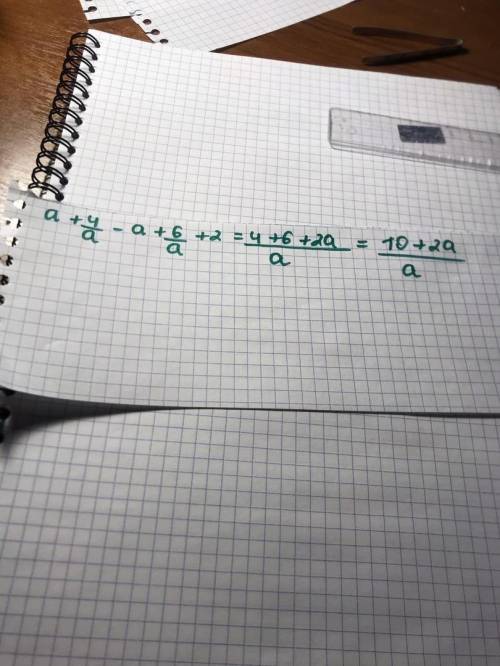 a + 4/a - a + 6/a + 2 = (4+6+2a)/a = (10+2a)/a